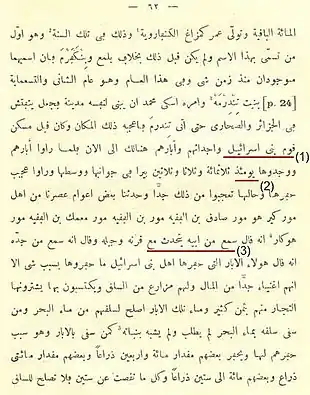 — ٦٢ —
المائة الباقية وتولّى عمر الكنبارويّة وذلك فى تلك السنة وهو اوّل
من تسمّى بهذا الاسم ولم يكن قبل ذلك بخلاف بلمع وبنكفرم فان اسميهما
موجودان منذ زمن شى وفى هذا العام وهو عام الثانى والتسعماية
[p. 24] بنيت تندرمة وامره اسكى محمد ان يبنى لنفسه مدينة فجعل يتفتش
فى الجزائر والصحارى حتى اتى تندرم فاعجبه ذلك المكان وكان قبل مسكن
قوم بنى اسرائيل واجداثهم وآبارهم هنالك الى الان فلما راوا آبارهم
(1)
ووجدوها يومئذ ثلاثمائة وثلاثا وثلاثين بيرا فى جوانبها ووسطها وراوا عجيب
(2)
حفرها وحالها تعجبوا من ذلك جدّا وحدثنا بعض اعوام عصرنا من اهل
موركير هو مور صادق بن الفقيه مور بن الفقيه مور ممك بن الفقيه مور
هوكار انه قال سمع من ابيه يتحدث مع قرنه وجيله وقال انه سمع من جدّه
(3)
انه قال هولاء الآبار التى حفرها اهل بنى اسرائيل ما حفروها بسبب شى الا
انهم اغنياء جدّا من المال ولهم مزارع من السلق ويكتسبون بها يشترونها
التجار منهم بثمن كثير وماء تلك الابار اصلح لسلقهم من ماء البحر ومن
سقى سلقه بماء البحر لم يطلب ولم يشبه بنباته كمن سقى بالابار وهو سبب
حفرهم لها ويحفر بعضهم مقدار ماية واربعين ذراعا وبعضهم مقدار مائتى
ذراع وبعضهم مائة الى ستين ذراعا وكل ما نقصت عن ستين فلا تصلح للسلق